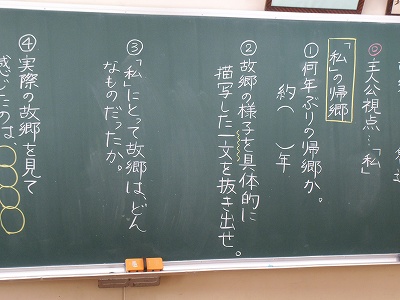 ◎主人公視点…「私」
「私」の帰郷
①何年ぶりの帰郷か。
約(　)年
②故郷の様子を具体的に
描写した一文を抜き出せ。
③「私」にとって故郷は、どん
なものだったか。
④実際の故郷を見て
感じたのは、○○○○